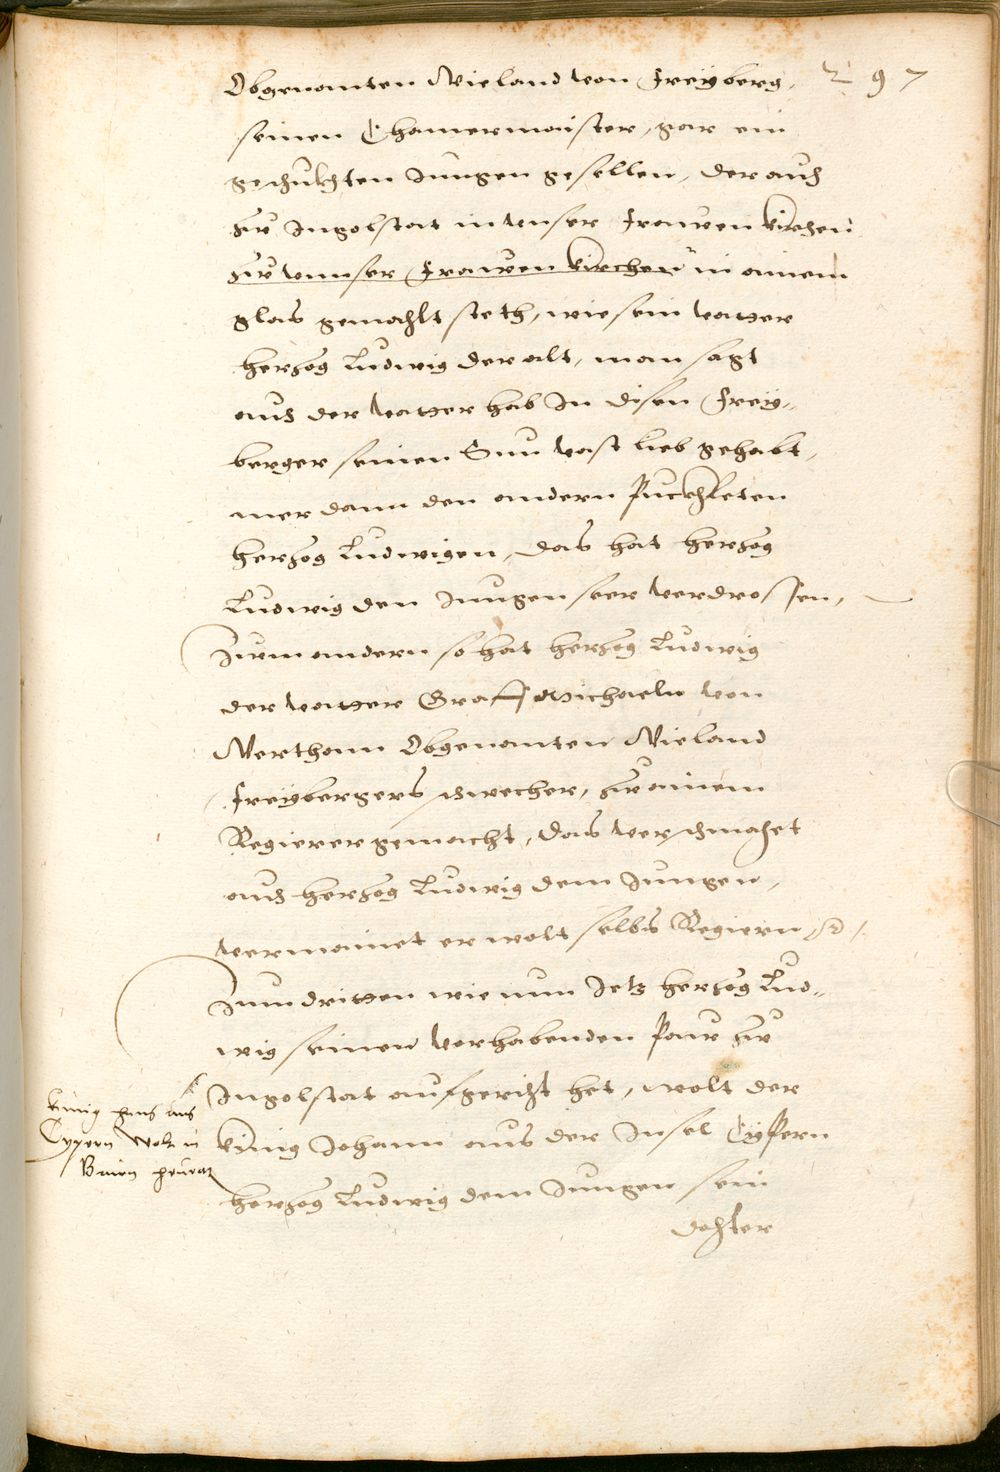 297
Obgenanten Wieland von Freyberg,
seinen Chamermaister, gar ein
geschickhten Jungen gesellen, der auch
zw Ingolstat in vnser frawen kirchen
zw vnnser frawen kirchen in ainem
glas gemahlt steth, wie sein vatter
herzog Ludwig der alt, man sagt
auch der vatter hab In disen Frey-
berger seinen Sun vast lieb gehabt,
mer dann den andern Puckhleten
herzog Ludwigen, das hat herzog
Ludwig den Jungen seer verdrossen,
Zum andern so hat herzog Ludwig
der vatter Graff Michaeln von
Werthann Obgenanten Wieland
freybergers schwecher, zw ainem
Regierer gemacht, das verschmahet
auch herzog Ludwig dem Jungen,
vermainet er wolt selbs Regiern
Zum dritten wie nun Jetz herzog Lud-
wig seinen vorhabenden Paw zw
Ingolstat aufgericht het, wolt der
künig Johann aus der Insel Cypern
herzog Ludwig dem Jungen sein
dochter
künig hans aus
Cypern wolt in
Bairn heurat